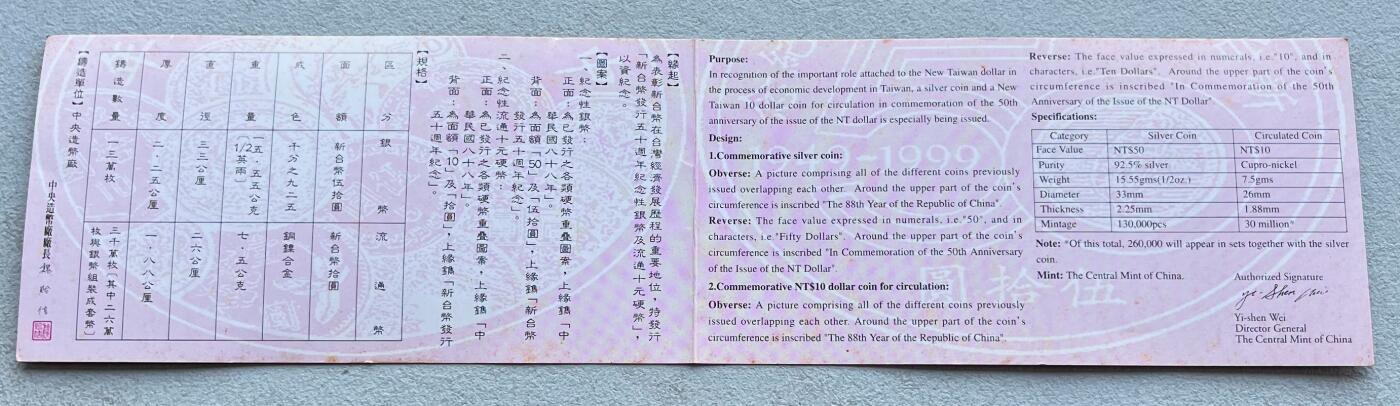 【緣起】
為表彰新台幣在台灣經濟發展歷程的重要地位，特發行
「新台幣發行五十週年紀念性銀幣及流通十元硬幣」，
以資紀念。
【圖案】
一、紀念性銀幣：
正面：為已發行之各類硬幣重疊圖案，上緣鐫「中
華民國八十八年」。
背面：為面額「50」及「伍拾圓」，上緣鐫「新台幣
發行五十週年紀念」。
二、紀念性流通十元硬幣：
正面：為已發行之各類硬幣重疊圖案，上緣鐫「中
華民國八十八年」。
背面：為面額「10」及「拾圓」，上緣鐫「新台幣發行
五十週年紀念」。
【規格】
區分 銀幣 流通幣
面額 新台幣伍拾圓 新台幣拾圓
成色 千分之九二五 銅鎳合金
重量 一五．五五公克（1/2英兩） 七．五公克
直徑 三三公厘 二六公厘
厚度 二．二五公厘 一．八八公厘
鑄造數量 一三萬枚 三千萬枚（其中二六萬枚與銀幣組裝成套幣）
【鑄造單位】中央造幣廠
中央造幣廠廠長
Purpose:
In recognition of the important role attached to the New Taiwan dollar in
the process of economic development in Taiwan, a silver coin and a New
Taiwan 10 dollar coin for circulation in commemoration of the 50th
anniversary of the issue of the NT dollar is especially being issued.
Design:
1.Commemorative silver coin:
Obverse: A picture comprising all of the different coins previously
issued overlapping each other. Around the upper part of the coin's
circumference is inscribed "The 88th Year of the Republic of China".
Reverse: The face value expressed in numerals, i.e."50", and in
characters, i.e."Fifty Dollars". Around the upper part of the coin's
circumference is inscribed "In Commemoration of the 50th Anniversary
of the Issue of the NT Dollar".
2.Commemorative NT$10 dollar coin for circulation:
Obverse: A picture comprising all of the different coins previously
issued overlapping each other. Around the upper part of the coin's
circumference is inscribed "The 88th Year of the Republic of China".
Reverse: The face value expressed in numerals, i.e."10", and in
characters, i.e."Ten Dollars". Around the upper part of the coin's
circumference is inscribed "In Commemoration of the 50th
Anniversary of the Issue of the NT Dollar".
Specifications:
Category Silver Coin Circulated Coin
Face Value NT$50 NT$10
Purity 92.5% silver Cupro-nickel
Weight 15.55gms(1/2oz.) 7.5gms
Diameter 33mm 26mm
Thickness 2.25mm 1.88mm
Mintage 130,000pcs 30 million*
Note: *Of this total, 260,000 will appear in sets together with the silver
coin.
Mint: The Central Mint of China.
Authorized Signature
Yi-shen Wei
Director General
The Central Mint of China